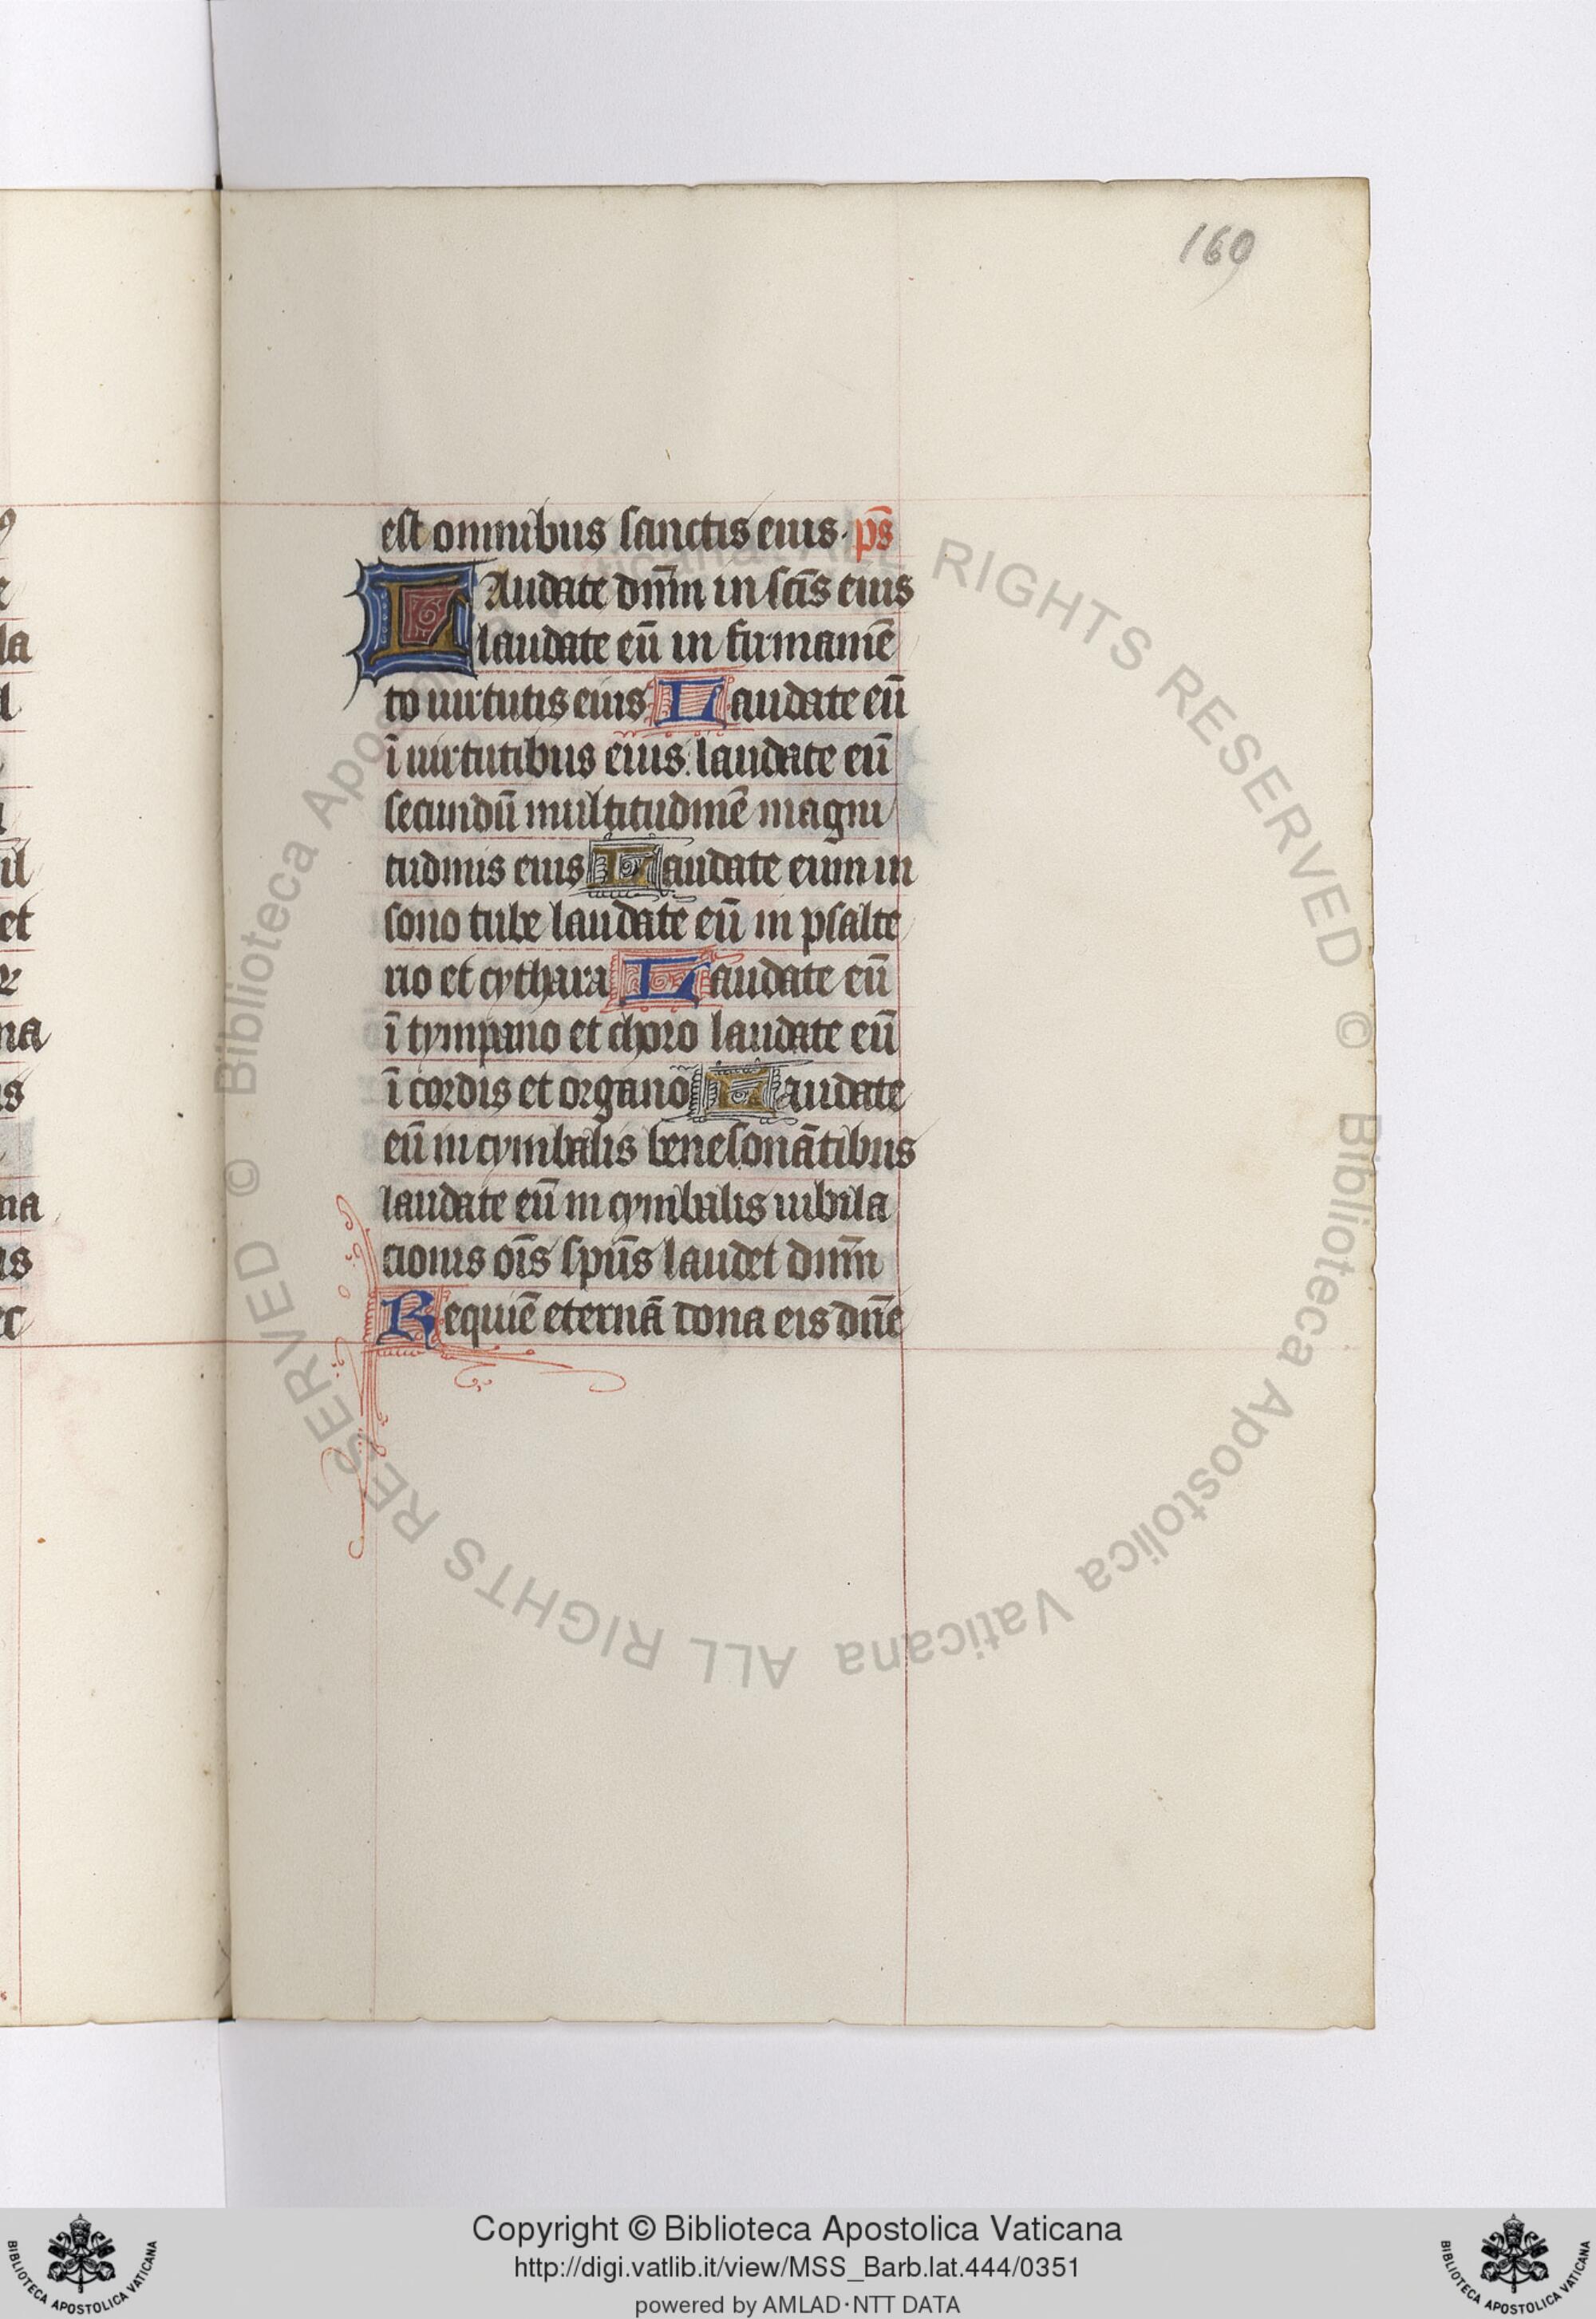 160
est omnibus sanctis eius. ps̄
LAudate dn̄m in sc̄is eius
laudate eū in firmamē
to uirtutis eius Laudate eū
ī uirtutibus eius. laudate eū
secundū multitudinē magni
tudinis eius Laudate eum in
sono tube laudate eū in psalte
rio et cythara Laudate eū
ī tympano et choro laudate eū
ī cordis et organo Laudate
eū in cymbalis benesonātibus
laudate eū in cymbalis iubila
cionis ōis spūs laudet dn̄m
Requiē eternā dona eis dn̄e
la
et
na
is
na
is
© Biblioteca Apostolica Vaticana ALL RIGHTS RESERVED
© Biblioteca Apostolica Vaticana ALL RIGHTS RESERVED
Copyright © Biblioteca Apostolica Vaticana
http://digi.vatlib.it/view/MSS_Barb.lat.444/0351
powered by AMLAD·NTT DATA
BIBLIOTECA APOSTOLICA VATICANA
BIBLIOTECA APOSTOLICA VATICANA